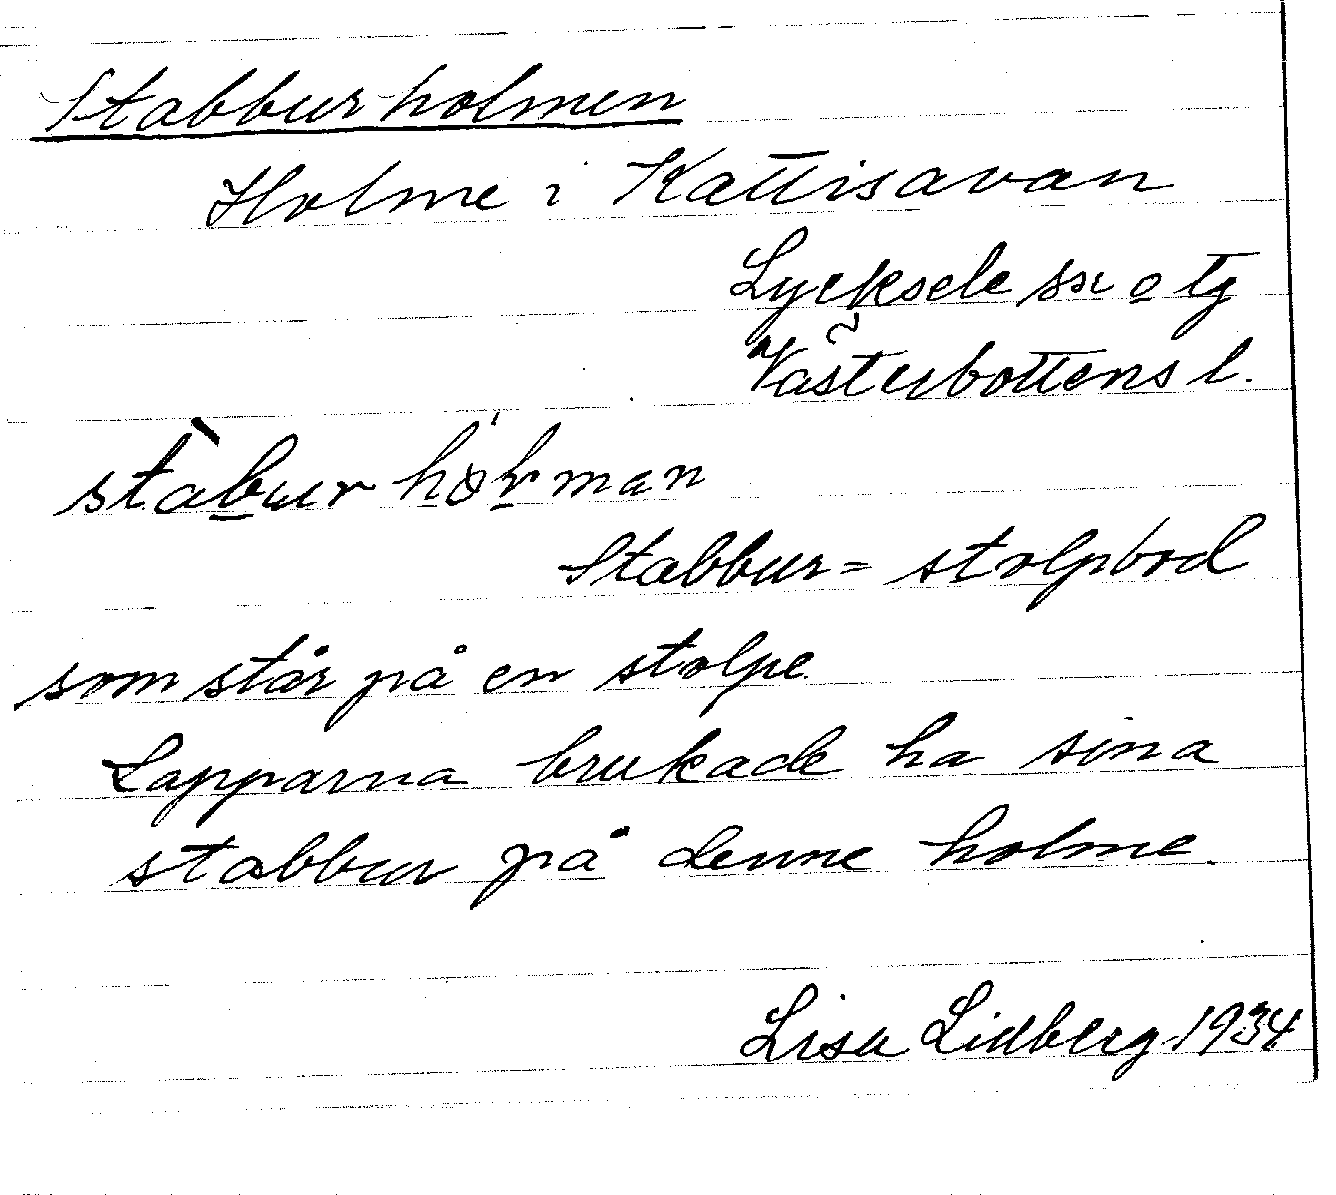 Stabburholmen
Holme i Kattisavan
Lycksele sn o tg
Västerbottens l.
Stabbur = stolpbod
som står på en stolpe.
Lapparna brukade ha sina
stabbur på denne holme.
Lisa Lidberg 1934